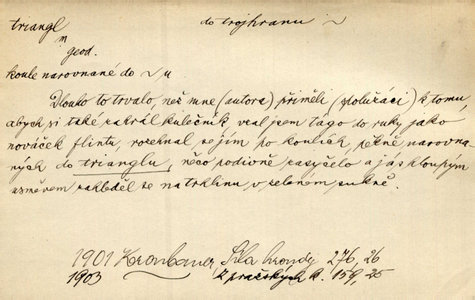 triangl do trojhranu ~
m
geod.
koule narovnané do ~u
Dlouho to trvalo, než mne (autora) přiměli (spolužáci) k tomu
abych si také zahrál kulečník vzal jsem tágo do ruky jako
nováček flintu, rozehnal se jím po koulích, pěkně narovna-
ných do trianglu, něco podivně zasyčelo a já s hloupým
úsměvem zahleděl se na trhlinu v zeleném sukně.
1901 Kronbauer, Síla hroudy 276, 26
1903 Z pražských k. 159, 25